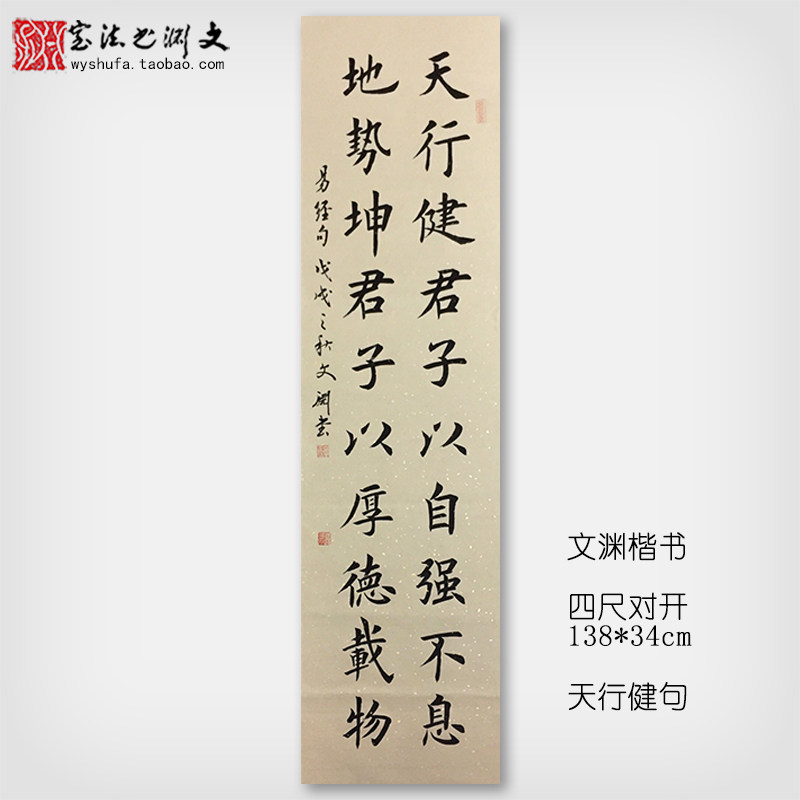 文渊书法定
wyshufa.taobao.com
天行健君子以自强不息
地势坤君子以厚德載物
易经句 戊戌之秋文渊书
文渊楷书
四尺对开
138*34cm
天行健句